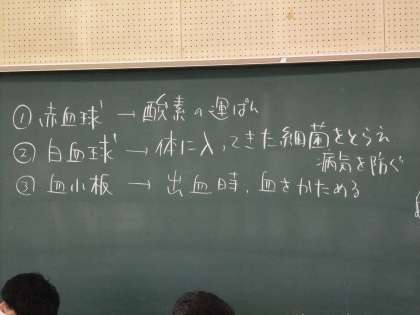 ① 赤血球 → 酸素の運ぱん
② 白血球 → 体に入ってきた細菌をとらえ
病気を防ぐ
③ 血小板 → 出血時、血をかためる